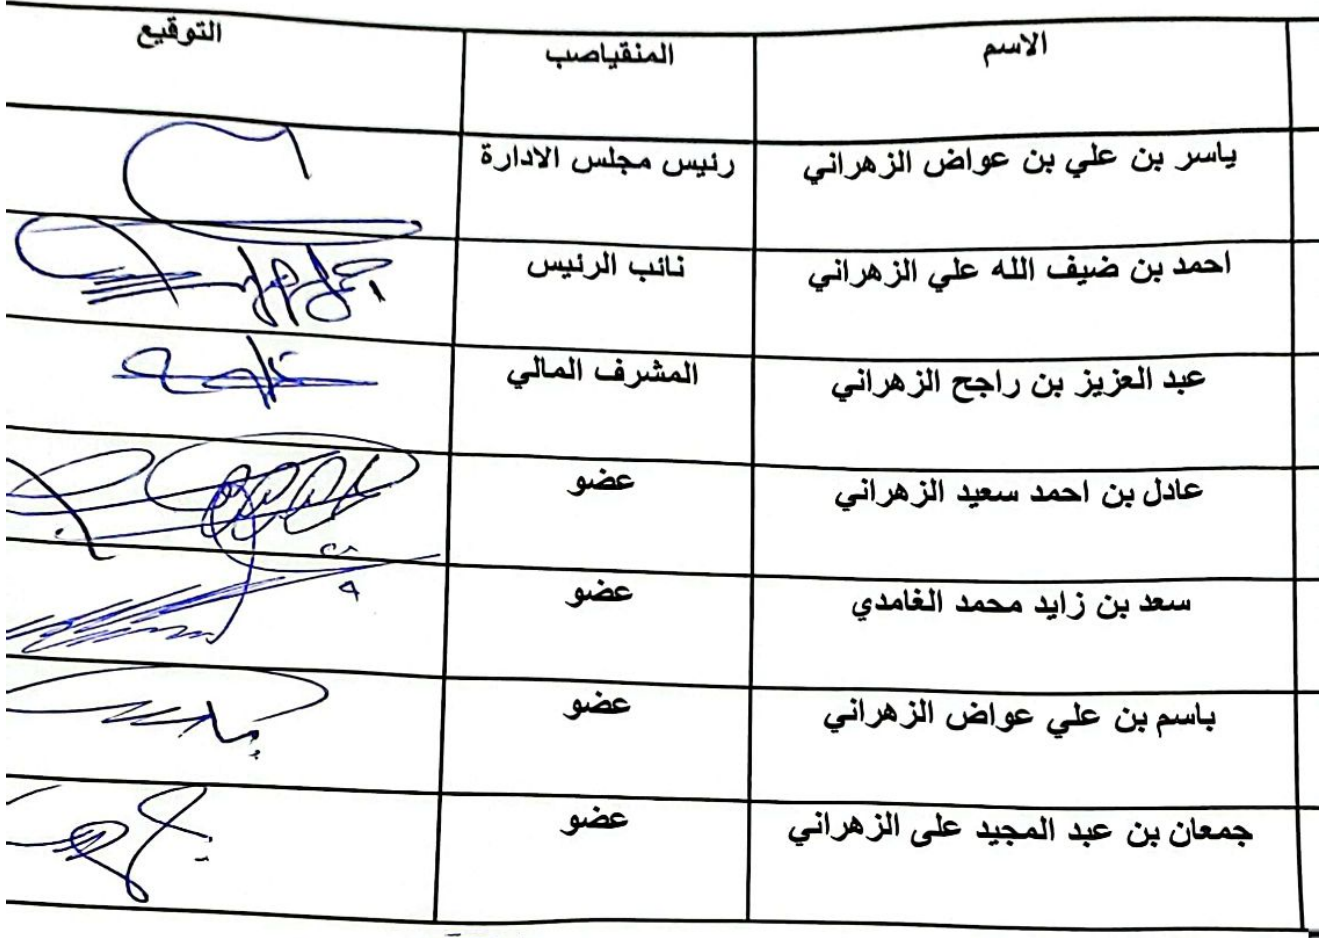 الاسم المنقياصب التوقيع
ياسر بن علي بن عواض الزهراني رئيس مجلس الادارة
احمد بن ضيف الله علي الزهراني نائب الرئيس
عبد العزيز بن راجح الزهراني المشرف المالي
عادل بن احمد سعيد الزهراني عضو
سعد بن زايد محمد الغامدي عضو
باسم بن علي عواض الزهراني عضو
جمعان بن عبد المجيد على الزهراني عضو